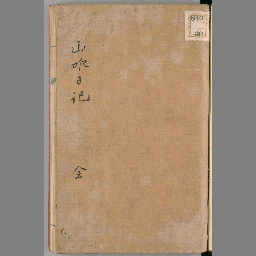 山吹日記 全